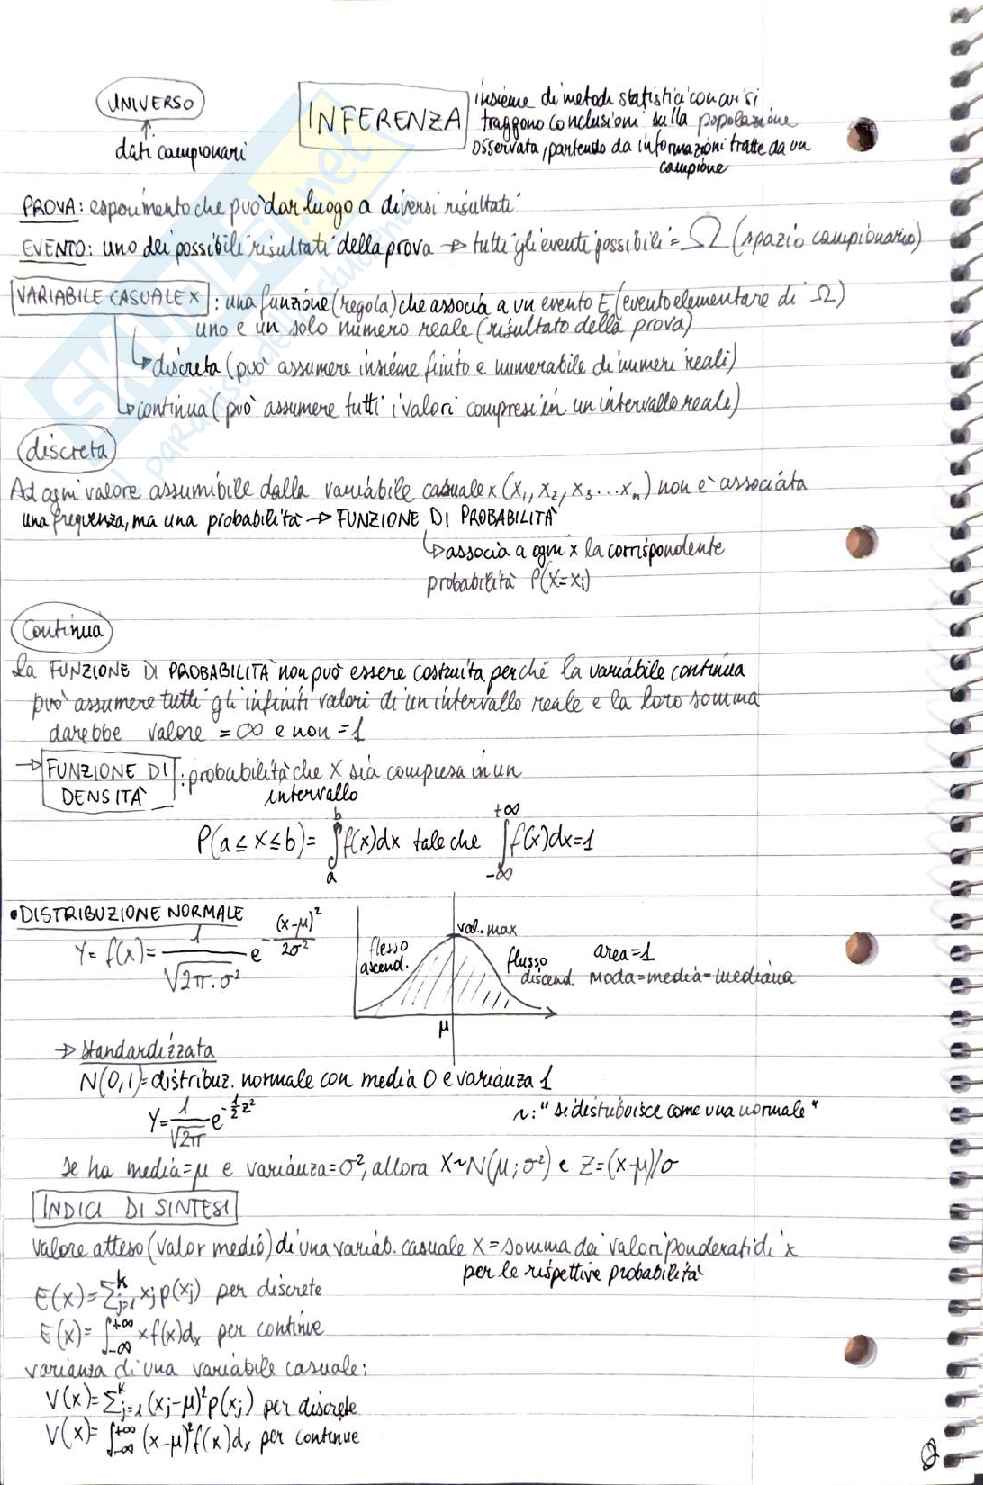 UNIVERSO
dati campionari
INFERENZA
insieme di metodi statistici con cui si
traggono conclusioni sulla popolazione
osservata, partendo da informazioni tratte da un
campione
PROVA: esperimento che può dar luogo a diversi risultati
EVENTO: uno dei possibili risultati della prova → tutti gli eventi possibili = Ω (spazio campionario)
VARIABILE CASUALE X : una funzione (regola) che associa a un evento E (evento elementare di Ω)
uno e un solo numero reale (risultato della prova)
↳ discreta (può assumere insieme finito e numerabile di numeri reali)
↳ continua (può assumere tutti i valori compresi in un intervallo reale)
discreta
Ad ogni valore assumibile dalla variabile casuale x (x₁, x₂, x₃ ... xₙ) non è associata
una frequenza, ma una probabilità → FUNZIONE DI PROBABILITÀ
↳ associa a ogni x la corrispondente
probabilità P(X=xᵢ)
Continua
La FUNZIONE DI PROBABILITÀ non può essere costruita perché la variabile continua
può assumere tutti gli infiniti valori di un intervallo reale e la loro somma
darebbe valore = ∞ e non = 1
→ FUNZIONE DI DENSITÀ : probabilità che X sia compresa in un
intervallo
P(a ≤ X ≤ b) = ∫ₐᵇ f(x)dx tale che ∫₋∞⁺∞ f(x)dx = 1
• DISTRIBUZIONE NORMALE
Y = f(x) = 1/√(2π·σ²) e^(-(x-μ)²/2σ²)
flesso
ascend.
val. max
flusso
discend.
μ
area = 1
Moda = media = mediana
→ Standardizzata
N(0,1) = distribuz. normale con media 0 e varianza 1
Y = 1/√(2π) e^(-½z²)
~ : "si distribuisce come una normale"
Se ha media = μ e varianza = σ², allora X ~ N(μ; σ²) e Z = (x-μ)/σ
INDICI DI SINTESI
Valore atteso (valor medio) di una variab. casuale X = somma dei valori ponderati di x
per le rispettive probabilità
E(x) = Σⱼ₌₁ᵏ xⱼ p(xⱼ) per discrete
E(x) = ∫₋∞⁺∞ x f(x)dx per continue
varianza di una variabile casuale:
V(x) = Σⱼ₌₁ᵏ (xⱼ-μ)² p(xⱼ) per discrete
V(x) = ∫₋∞⁺∞ (x-μ)² f(x)dx per continue